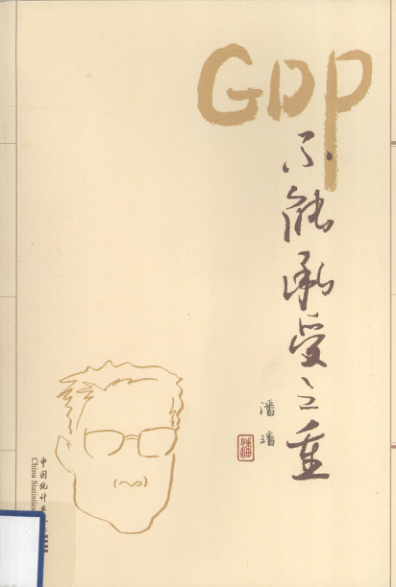 GDP
不能承受之重
潘璠
潘
中国统计
China Statistics